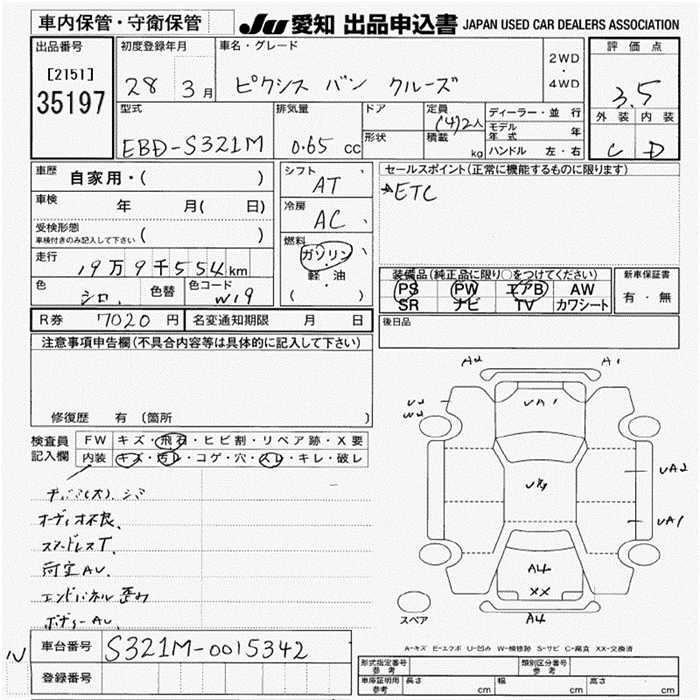 車内保管・守衛保管
JU 愛知 出品申込書 JAPAN USED CAR DEALERS ASSOCIATION
出品番号
[2151]
35197
初度登録年月
28 3月
車名・グレード
ピクシス バン クルーズ
2WD
・
4WD
評価点
3.5
外装 内装
C D
型式
EBD-S321M
排気量
0.65 cc
ドア
形状
定員
(4)2人
積載
kg
ディーラー・並行
モデル年式 年
ハンドル 左・右
車歴
自家用・( )
車検
年 月( 日)
受検形態
車検付きのみ記入して下さい ( )
走行
19万9千554km
色
シロ、
色替
色コード
W19
シフト
AT
冷房
AC
燃料
ガソリン
・
軽油
( )
セールスポイント(正常に機能するものに限ります)
ETC
装備品(純正品に限り○をつけてください)
PS PW エアB AW
SR ナビ TV カワシート
新車保証書
有・無
R券 7020 円 名変通知期限 月 日
後日品
注意事項申告欄(不具合内容等は具体的に記入して下さい)
修復歴 有 (箇所 )
検査員
記入欄
FW キズ・飛石・ヒビ割・リペア跡・X要
内装 キズ・汚レ・コゲ・穴・スレ・キレ・破レ
オーディオ不良、
スタッドレスT、
荷室AU、
エンドパネル歪み
ボディーAU、
A2 A1
UA1
UA2
UA1
A4
XX
A4
スペア
A-キズ E-エクボ U-凹み W-補修跡 S-サビ C-腐食 XX-交換済
N
車台番号 S321M-0015342
登録番号
形式指定番号
参考
類別区分番号
参考
車庫証明用
参考
長さ cm 幅 cm 高さ cm